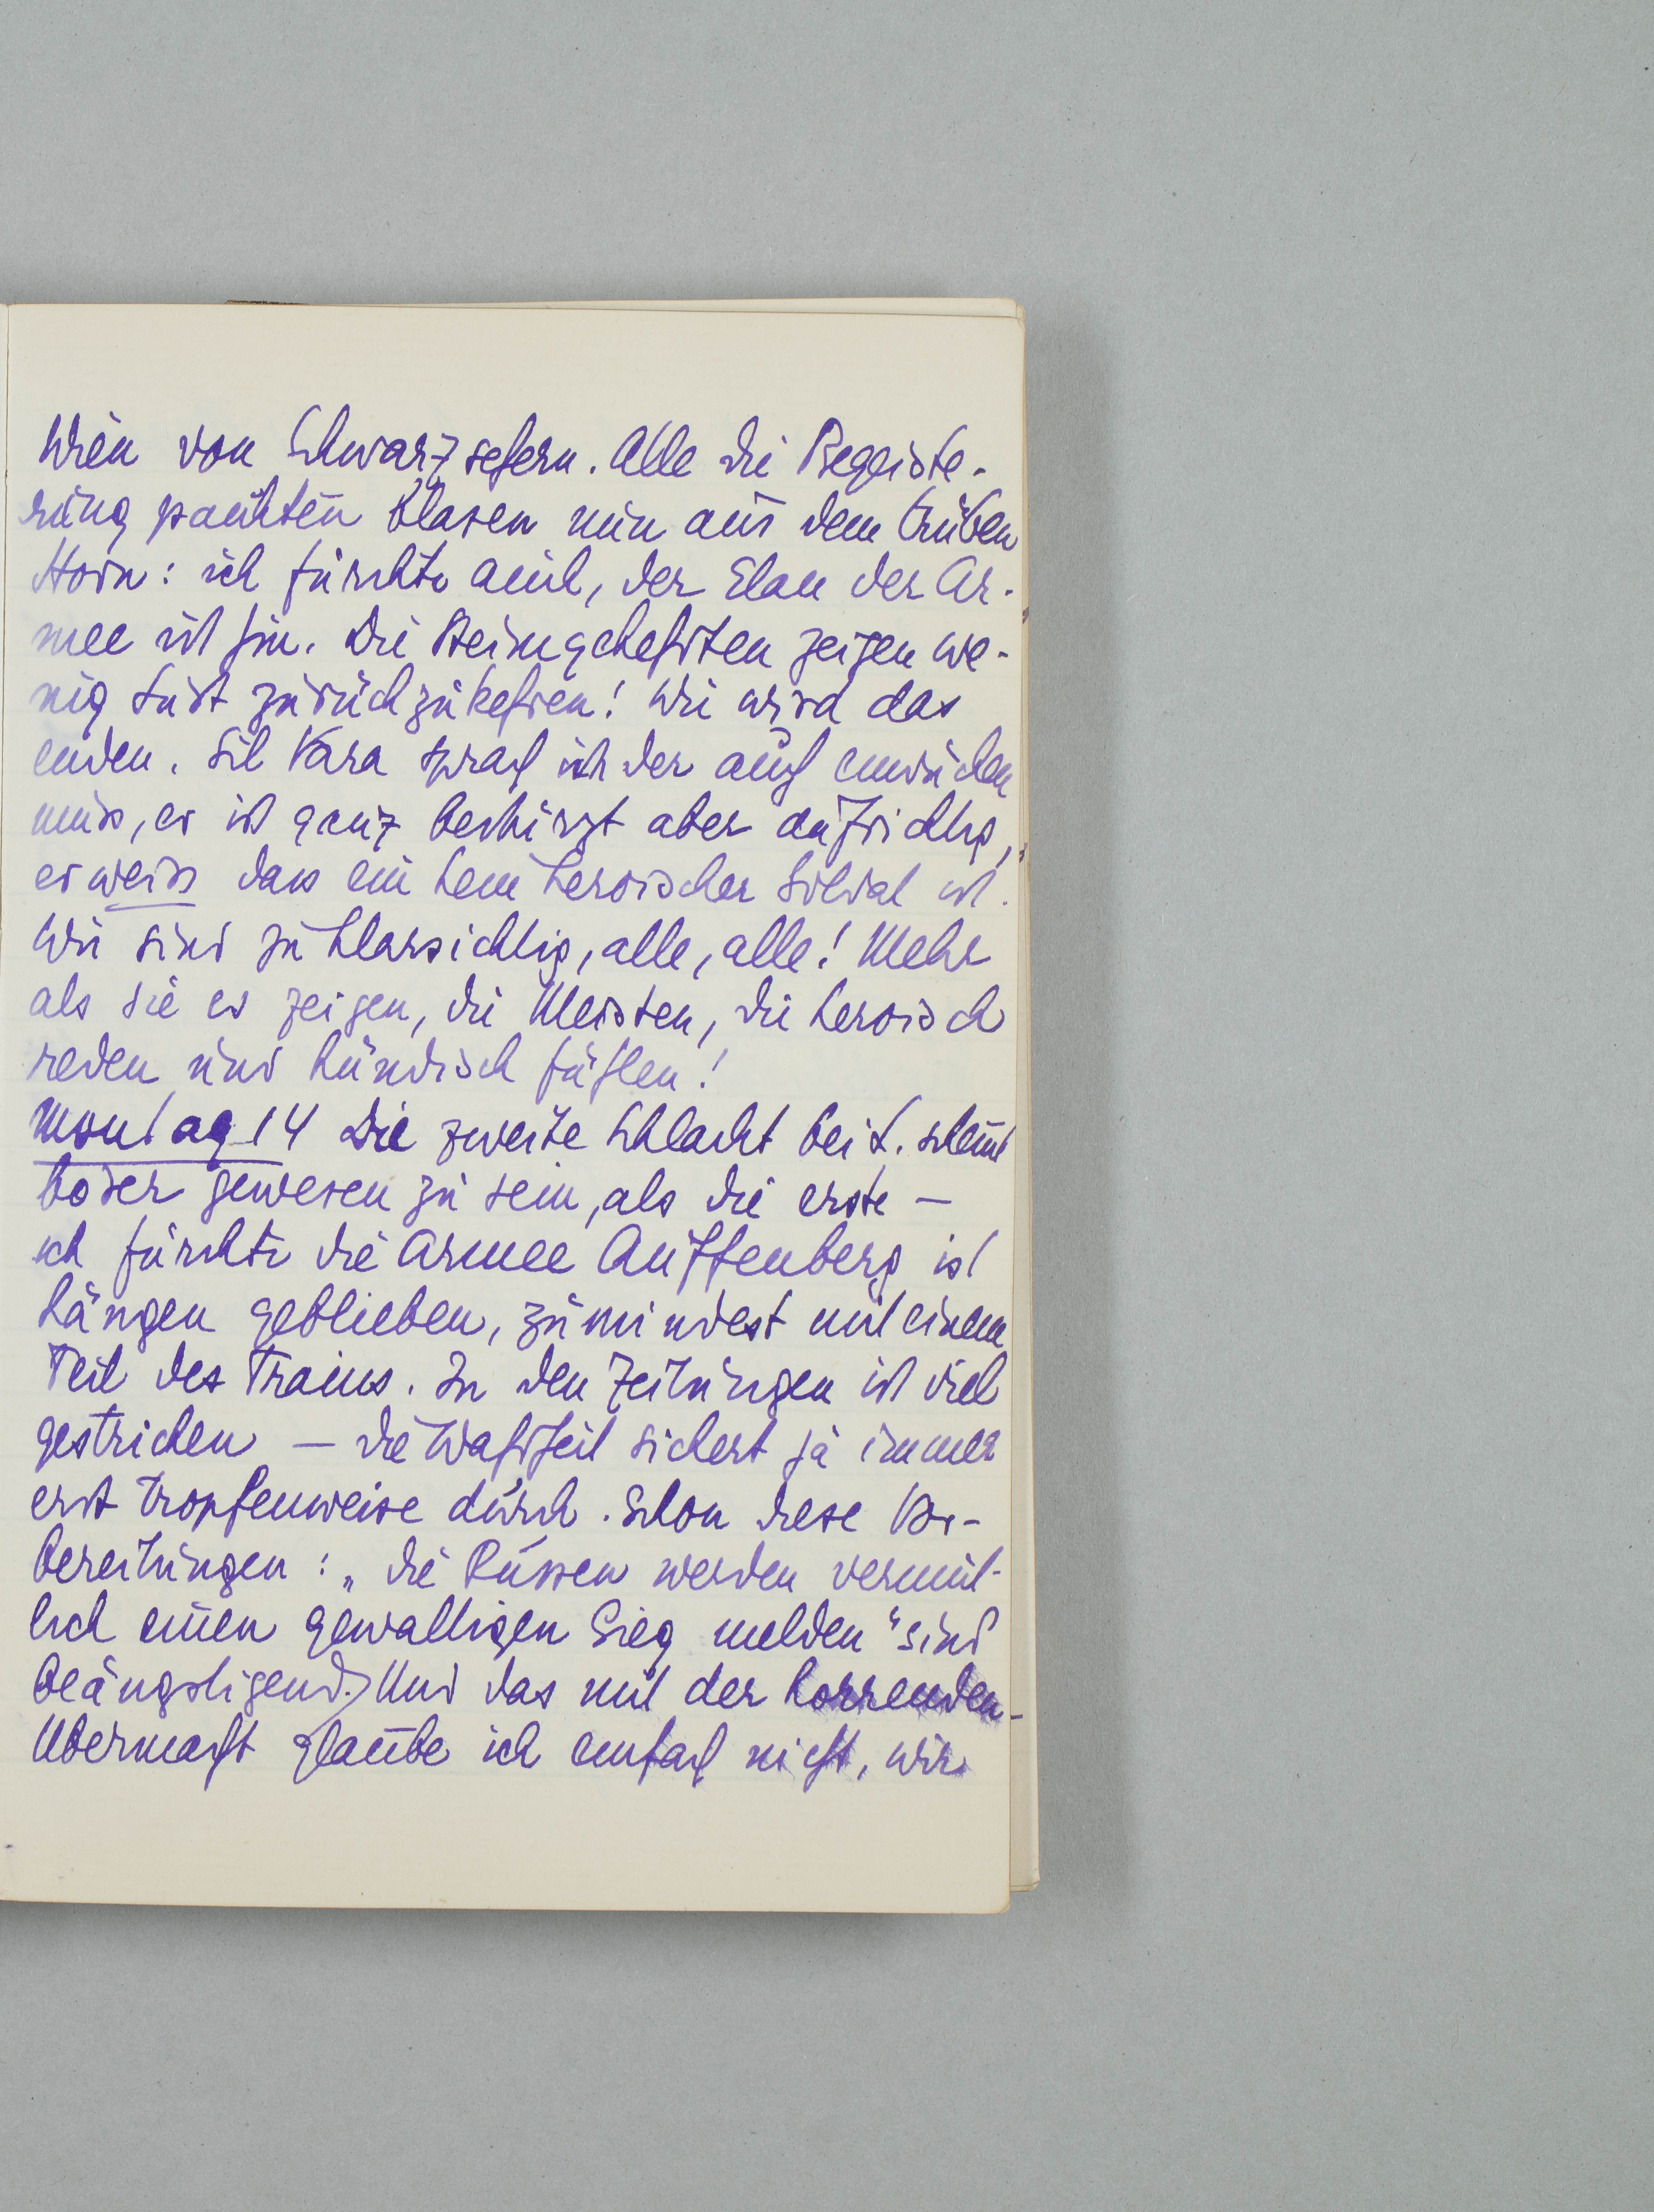 Wien von Schwarzsehern. Alle die Begeiste-
rung paukten blasen nun aus dem trüben
Horn: ich fürchte auch, der Elan der Ar-
mee ist hin. Die Heimgekehrten zeigen we-
nig Lust zurückzukehren! Wie wird das
enden. Sil Vara sprach ich der auch einrücken
muss, er ist ganz bestürzt aber aufrichtig,
er weiss dass er kein heroischer Soldat ist.
Wir sind zu klarsichtig, alle, alle! Mehr
als sie es zeigen, die Meisten, die heroisch
reden und hündisch fühlen!
Montag 14 Die zweite Schlacht bei L. scheint
böser gewesen zu sein, als die erste –
ich fürchte die Armee Auffenberg ist
hängen geblieben, zumindest mit einem
Teil des Trains. In den Zeitungen ist viel
gestrichen – die Wahrheit sickert ja immer
erst tropfenweise durch. Schon diese Vor-
bereitungen: „die Russen werden vermut-
lich einen gewaltigen Sieg melden" sind
beängstigend. Und das mit der horrenden
Übermacht glaube ich einfach nicht, wir